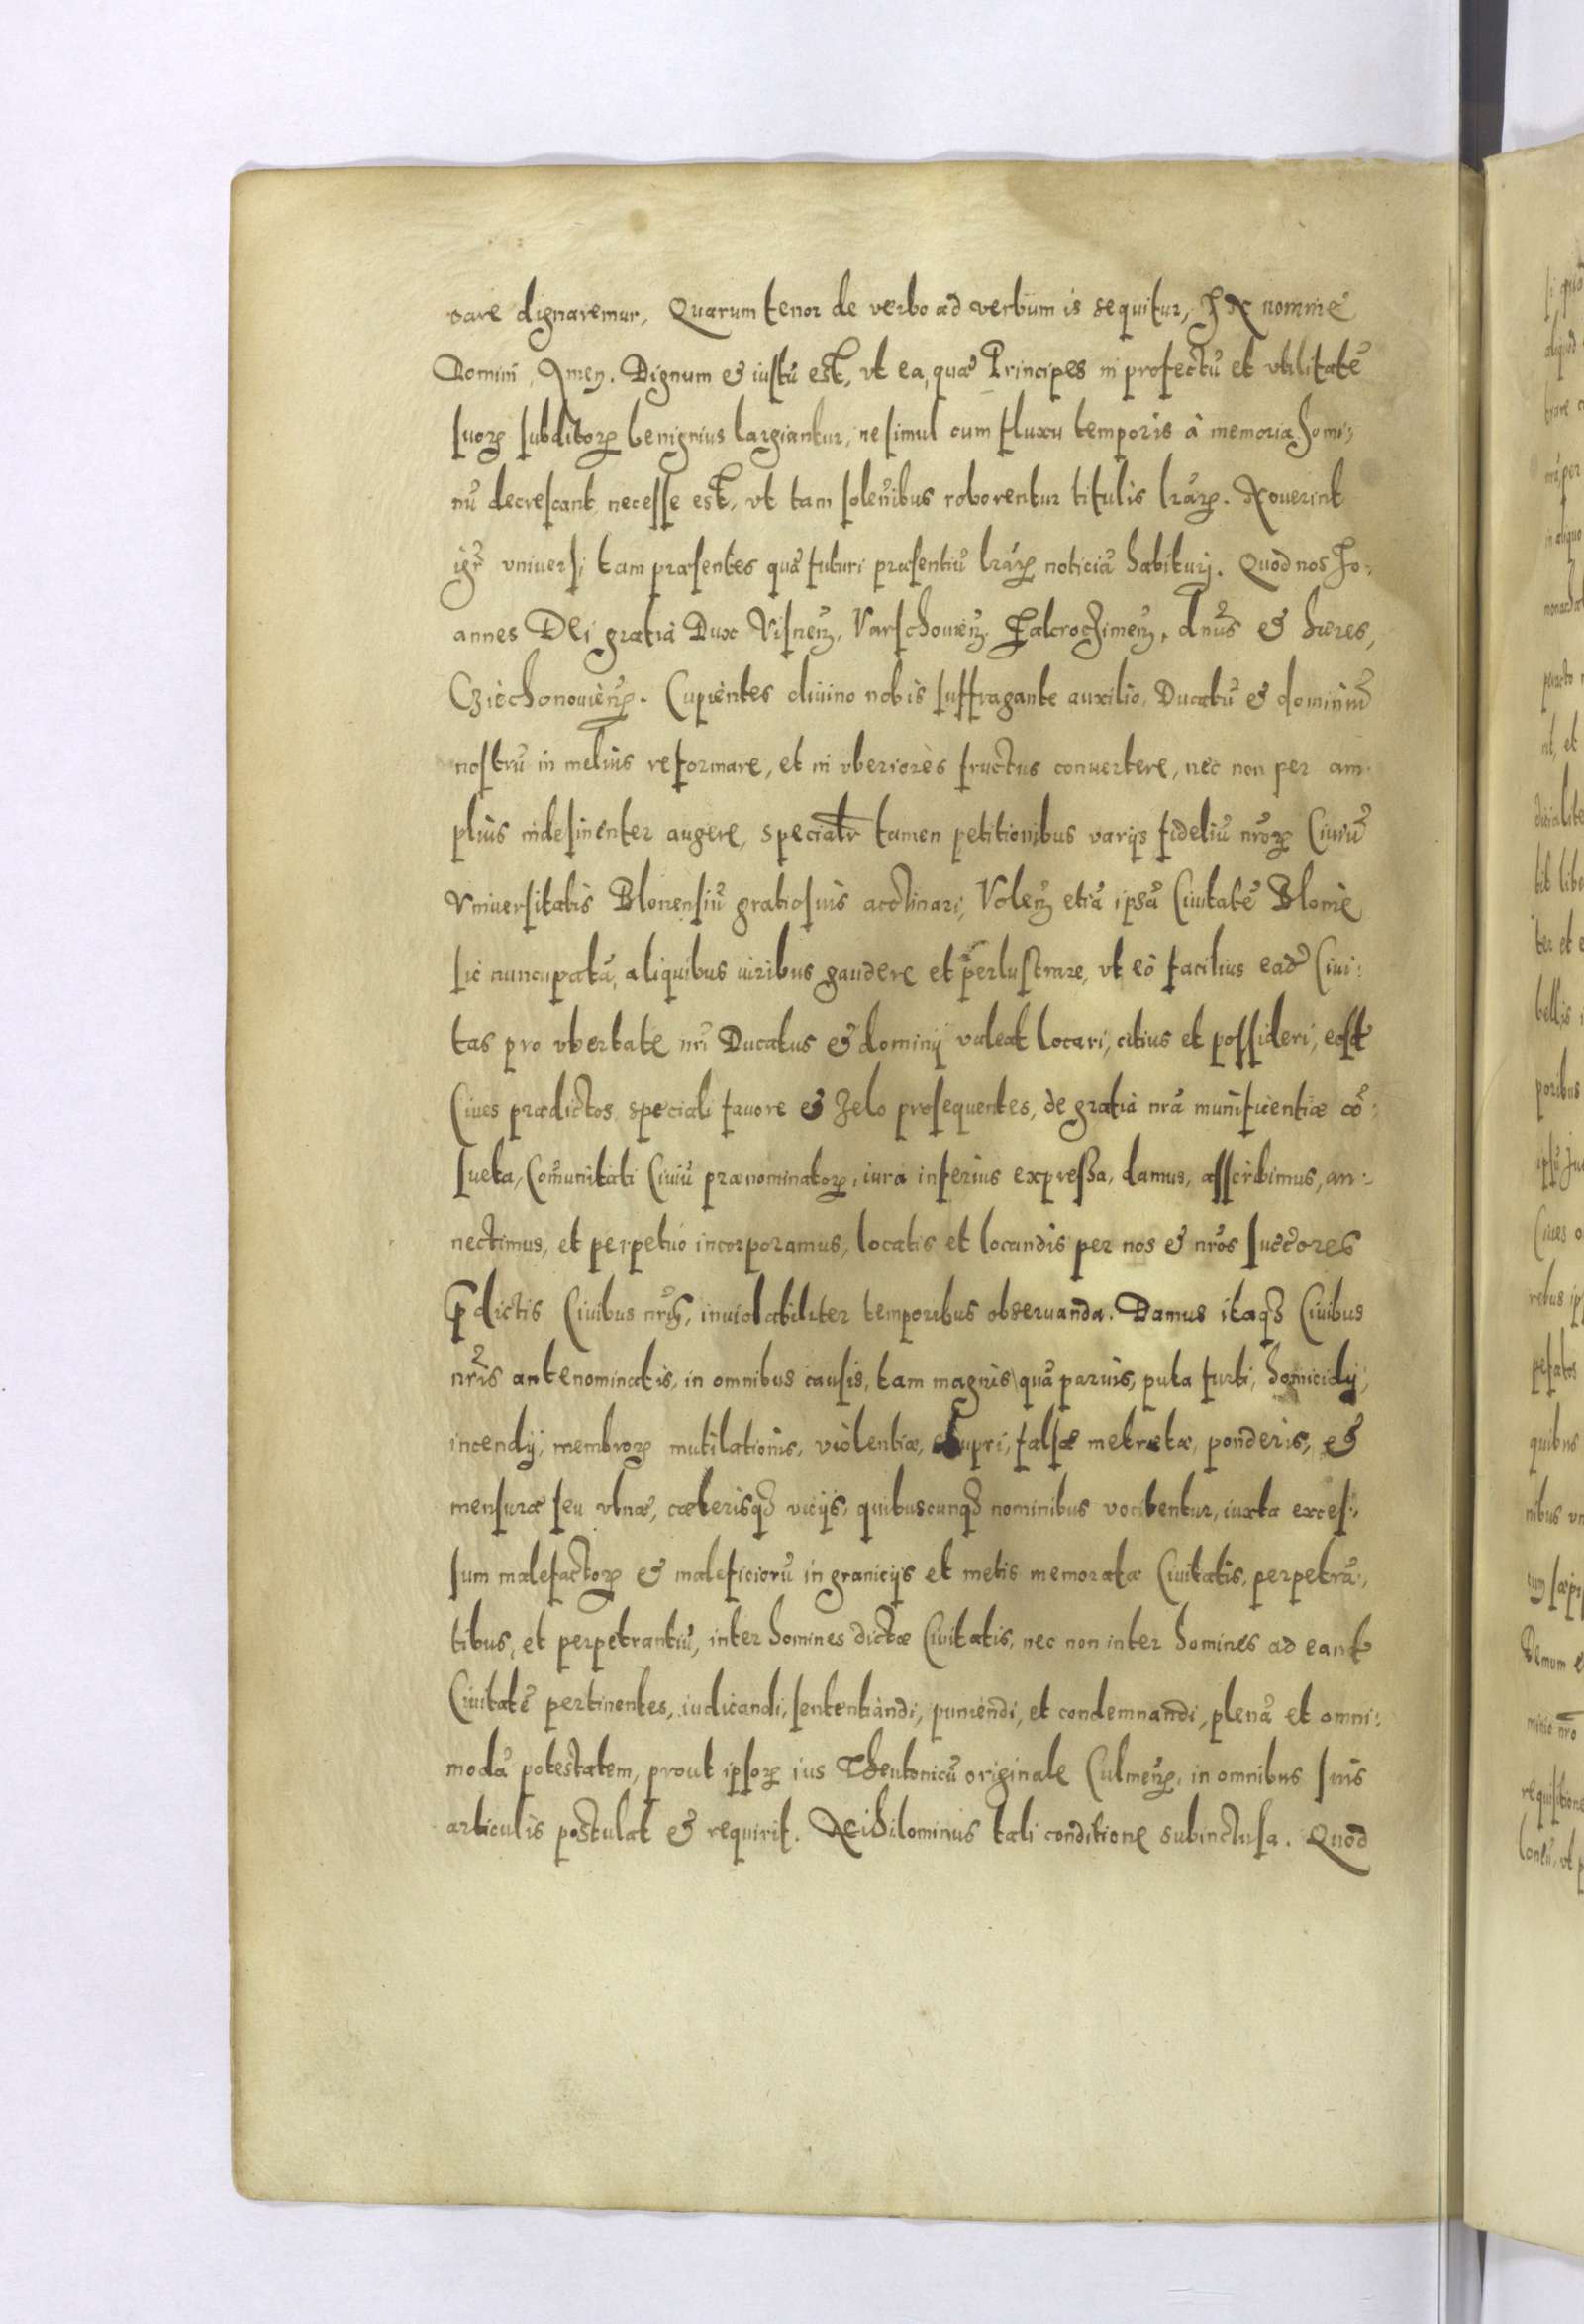 vare dignaremur, Quarum tenor de verbo ad verbum is sequitur, IN nomine
Domini, Amen. Dignum & iustũ est, vt ea, quæ Principes in profectũ et vtilitatẽ
suorꝝ subditorꝝ benignius largiantur, ne simul cum fluxu temporis à memoria homi:
nũ decrescant necesse est, vt tam solẽnibus roborentur titulis lr̃arꝝ. Nouerint
igr̃ vniuersi tam præsentes quã futuri præsentiũ lr̃arꝝ noticiã habituri. Quod nos Jo:
annes Dei gratia Dux Visnen̄, Varschouien̄, Zakroczimen̄, dn̄us & hæres,
Cziechonouien̄. Cupientes diuino nobis suffragante auxilio, Ducatũ & dominiũ
nostrũ in melius reformare, et in vberiores fructus conuertere, nec non per am:
plius indesinenter augere, specialr̃ tamen petitionibus varijs fideliũ nr̃orꝝ Ciuiũ
Vniuersitatis Blonensiũ gratiosius acclinari, Volen̄ etiã ipsã Ciuitatẽ Blonie
sic nuncupatã, aliquibus iuribus gaudere et perlustrare, vt eò facilius ead̃ Ciui:
tas pro vbertate nr̃i Ducatus & dominij valeat locari, citius et possideri, eosd̃
Ciues prædictos speciali fauore & zelo prosequentes, de gratia nr̃a munificentiæ cõ:
sueta, Com̃unitati Ciuiũ prænominatorꝝ, iura inferius expreßa, damus, asscribimus, an:
nectimus, et perpetuò incorporamus, locatis et locandis per nos & nr̃os succ̃ores
p̃dictis Ciuibus nr̃is, inuiolabiliter temporibus obseruanda. Damus itaqꝫ Ciuibus
nr̃is antenominatis, in omnibus causis, tam magnis quã paruis, puta furti, homicidij,
incendij, membrorꝝ mutilationis, violentiæ, stupri, falsæ metretæ, ponderis, &
mensuræ seu vlnæ, cæterisqꝫ vicijs, quibuscunqꝫ nominibus vocitentur, iuxta exces:
sum malefactorꝝ & maleficiorũ in granicijs et metis memoratæ Ciuitatis, perpetrã:
tibus, et perpetrantiũ, inter homines dictæ Ciuitatis, nec non inter homines ad eand̃
Ciuitatẽ pertinentes, iudicandi, sententiandi, puniendi, et condemnandi, plenã et omni:
modã potestatem, prout ipsorꝝ ius Theutonicũ originale Culmen̄, in omnibus suis
articulis postulat & requirit. Nihilominus tali conditione subinclusa. Quod